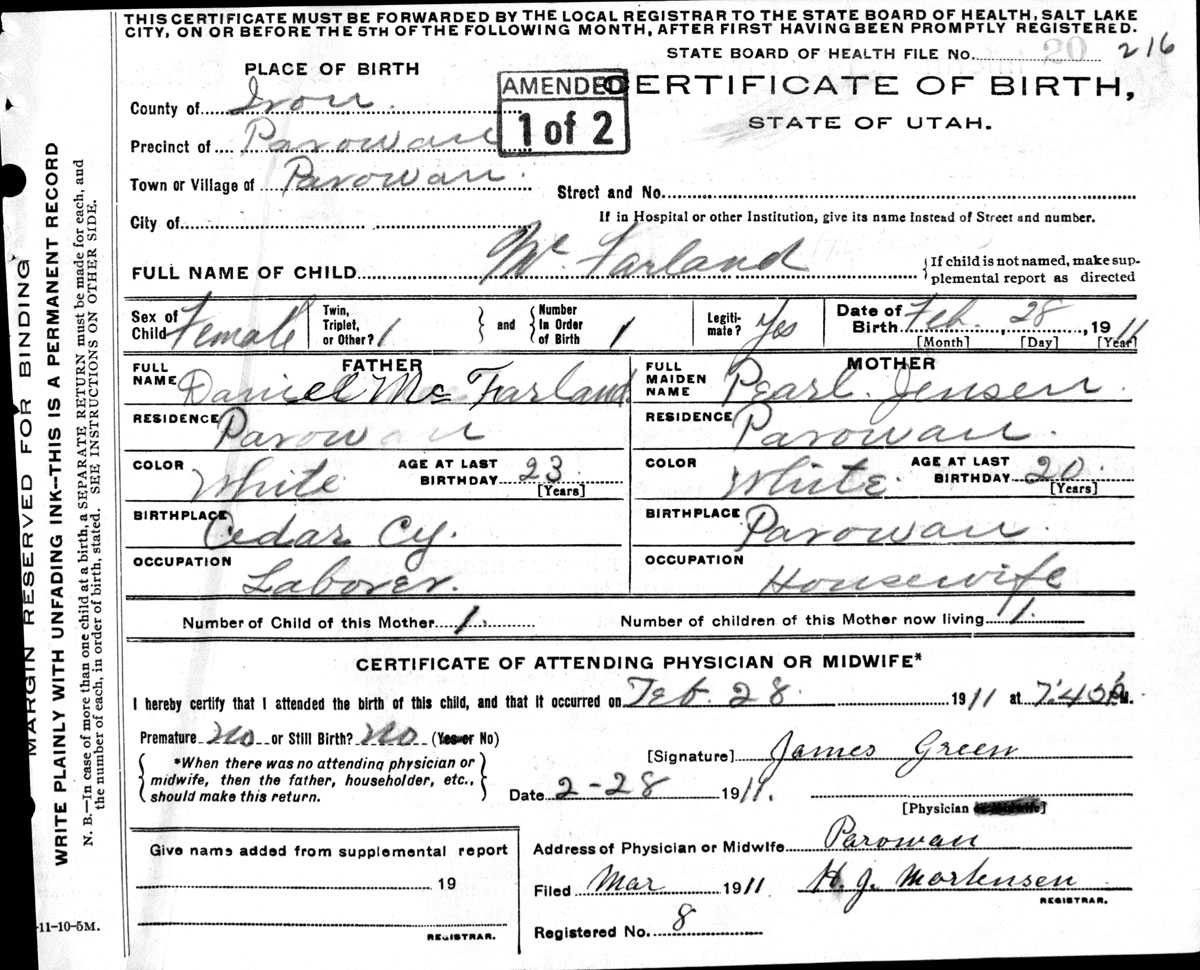 THIS CERTIFICATE MUST BE FORWARDED BY THE LOCAL REGISTRAR TO THE STATE BOARD OF HEALTH, SALT LAKE
CITY, ON OR BEFORE THE 5TH OF THE FOLLOWING MONTH, AFTER FIRST HAVING BEEN PROMPTLY REGISTERED.
STATE BOARD OF HEALTH FILE No. 20 216
PLACE OF BIRTH
AMENDED
1 of 2
CERTIFICATE OF BIRTH,
STATE OF UTAH.
County of Iron.
Precinct of Parowan
Town or Village of Parowan.
Street and No.
City of
If in Hospital or other Institution, give its name instead of Street and number.
FULL NAME OF CHILD Mc Farland
{If child is not named, make sup-
plemental report as directed
Sex of Child Female
Twin, Triplet, or Other? 1
and
Number In Order of Birth 1
Legiti-mate? Yes
Date of Birth Feb. 28, 1911
[Month] [Day] [Year]
FATHER
FULL NAME Daniel Mc Farland
RESIDENCE Parowan
COLOR White AGE AT LAST BIRTHDAY 23
[Years]
BIRTHPLACE Cedar Cy.
OCCUPATION Laborer.
MOTHER
FULL MAIDEN NAME Pearl Jensen.
RESIDENCE Parowan.
COLOR White. AGE AT LAST BIRTHDAY 20
[Years]
BIRTHPLACE Parowan.
OCCUPATION Housewife
Number of Child of this Mother 1. Number of children of this Mother now living 1.
CERTIFICATE OF ATTENDING PHYSICIAN OR MIDWIFE*
I hereby certify that I attended the birth of this child, and that it occurred on Feb. 28 1911 at 7:40 P.M.
Premature No or Still Birth? No (Yes or No)
*When there was no attending physician or
midwife, then the father, householder, etc.,
should make this return.
[Signature] James Green
Date 2-28 1911.
[Physician or Midwife]
Give name added from supplemental report
19
REGISTRAR.
Address of Physician or Midwife Parowan
Filed Mar 1911 H. J. Mortensen
REGISTRAR.
Registered No. 8
-11-10-5M.
MARGIN RESERVED FOR BINDING
WRITE PLAINLY WITH UNFADING INK—THIS IS A PERMANENT RECORD
N. B.—In case of more than one child at a birth, a SEPARATE RETURN must be made for each, and
the number of each, in order of birth, stated. SEE INSTRUCTIONS ON OTHER SIDE.